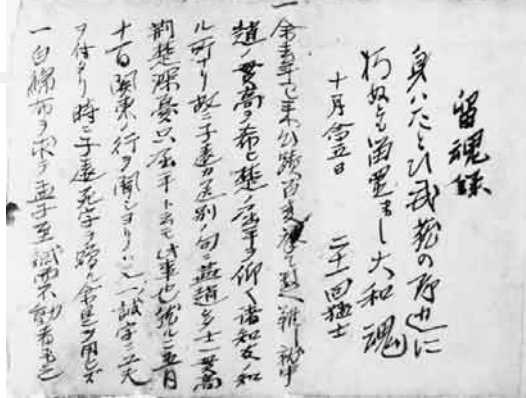 留魂録
身ハたとひ武蔵の野辺に
朽ぬとも留置まし大和魂
十月念五日 二十一回猛士
一 余去年已来心蹟百変挙て数へ難し就中
趙ノ貫高ヲ希ヒ楚ノ屈平ヲ仰ク諸知友ノ知
ル所ナリ故ニ子遠カ送別ノ句ニ燕趙多士一貫高
荆楚深憂只屈平ト云モ此事也然ルニ五月
十一日関東ノ行ヲ聞シヨリハ又一ノ誠字ニ工夫
ヲ付タリ時ニ子遠死字ヲ贈ル余是ヲ用ヒズ
一白綿布ヲ求テ孟子至誠而不動者未之